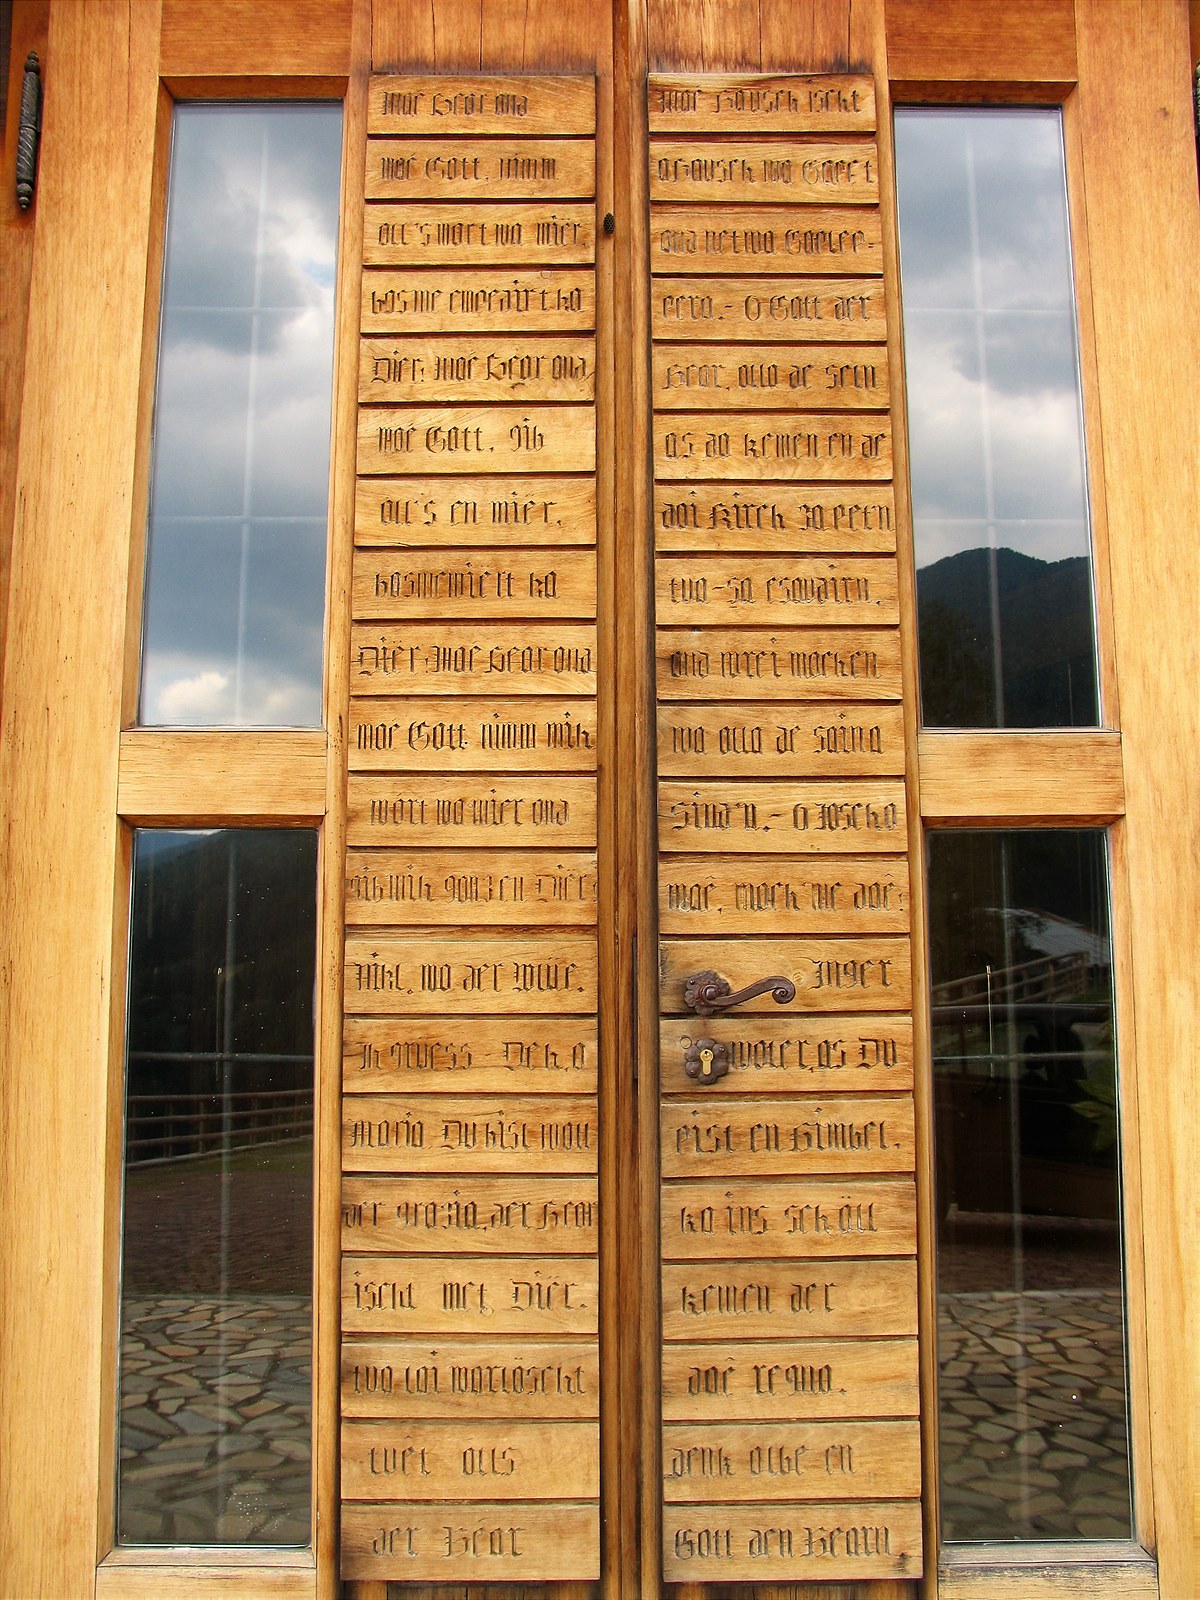 moe Heor ona
moé Gott, nimm
oll's wort wo mier,
bos me empfairt ko
Dier; moe Heor ona
moé Gott, gib
oll's en mier,
bos me miert ko
Dïer, moé Heor ona
moe Gott nimm mih
wort wo mier ona
gib mih gonz en Dier.
Nikl. wo der
H gruess - Deh, o
Maria, Du bist woll
der grozia, der Heor
ischt met Dïer.
tuo loi worlöscht
wêt olls
der Heor
moe Housch ischt
a Housch wo Gapet
ona net wo Gaplep-
pero.- O Gott der
Heor, ollo de sein
as do kemen en de
doi Kirch za petn
tuo-sa
ona wrei mochen
wo ollo de saina
Sina'n.- O Joscho
moê, moch me doê:
Inger
woter, as Du
pist en Himbel.
ko ins schöll
kemen der
doê regno.
denk olbe en
Gott den Hearn.